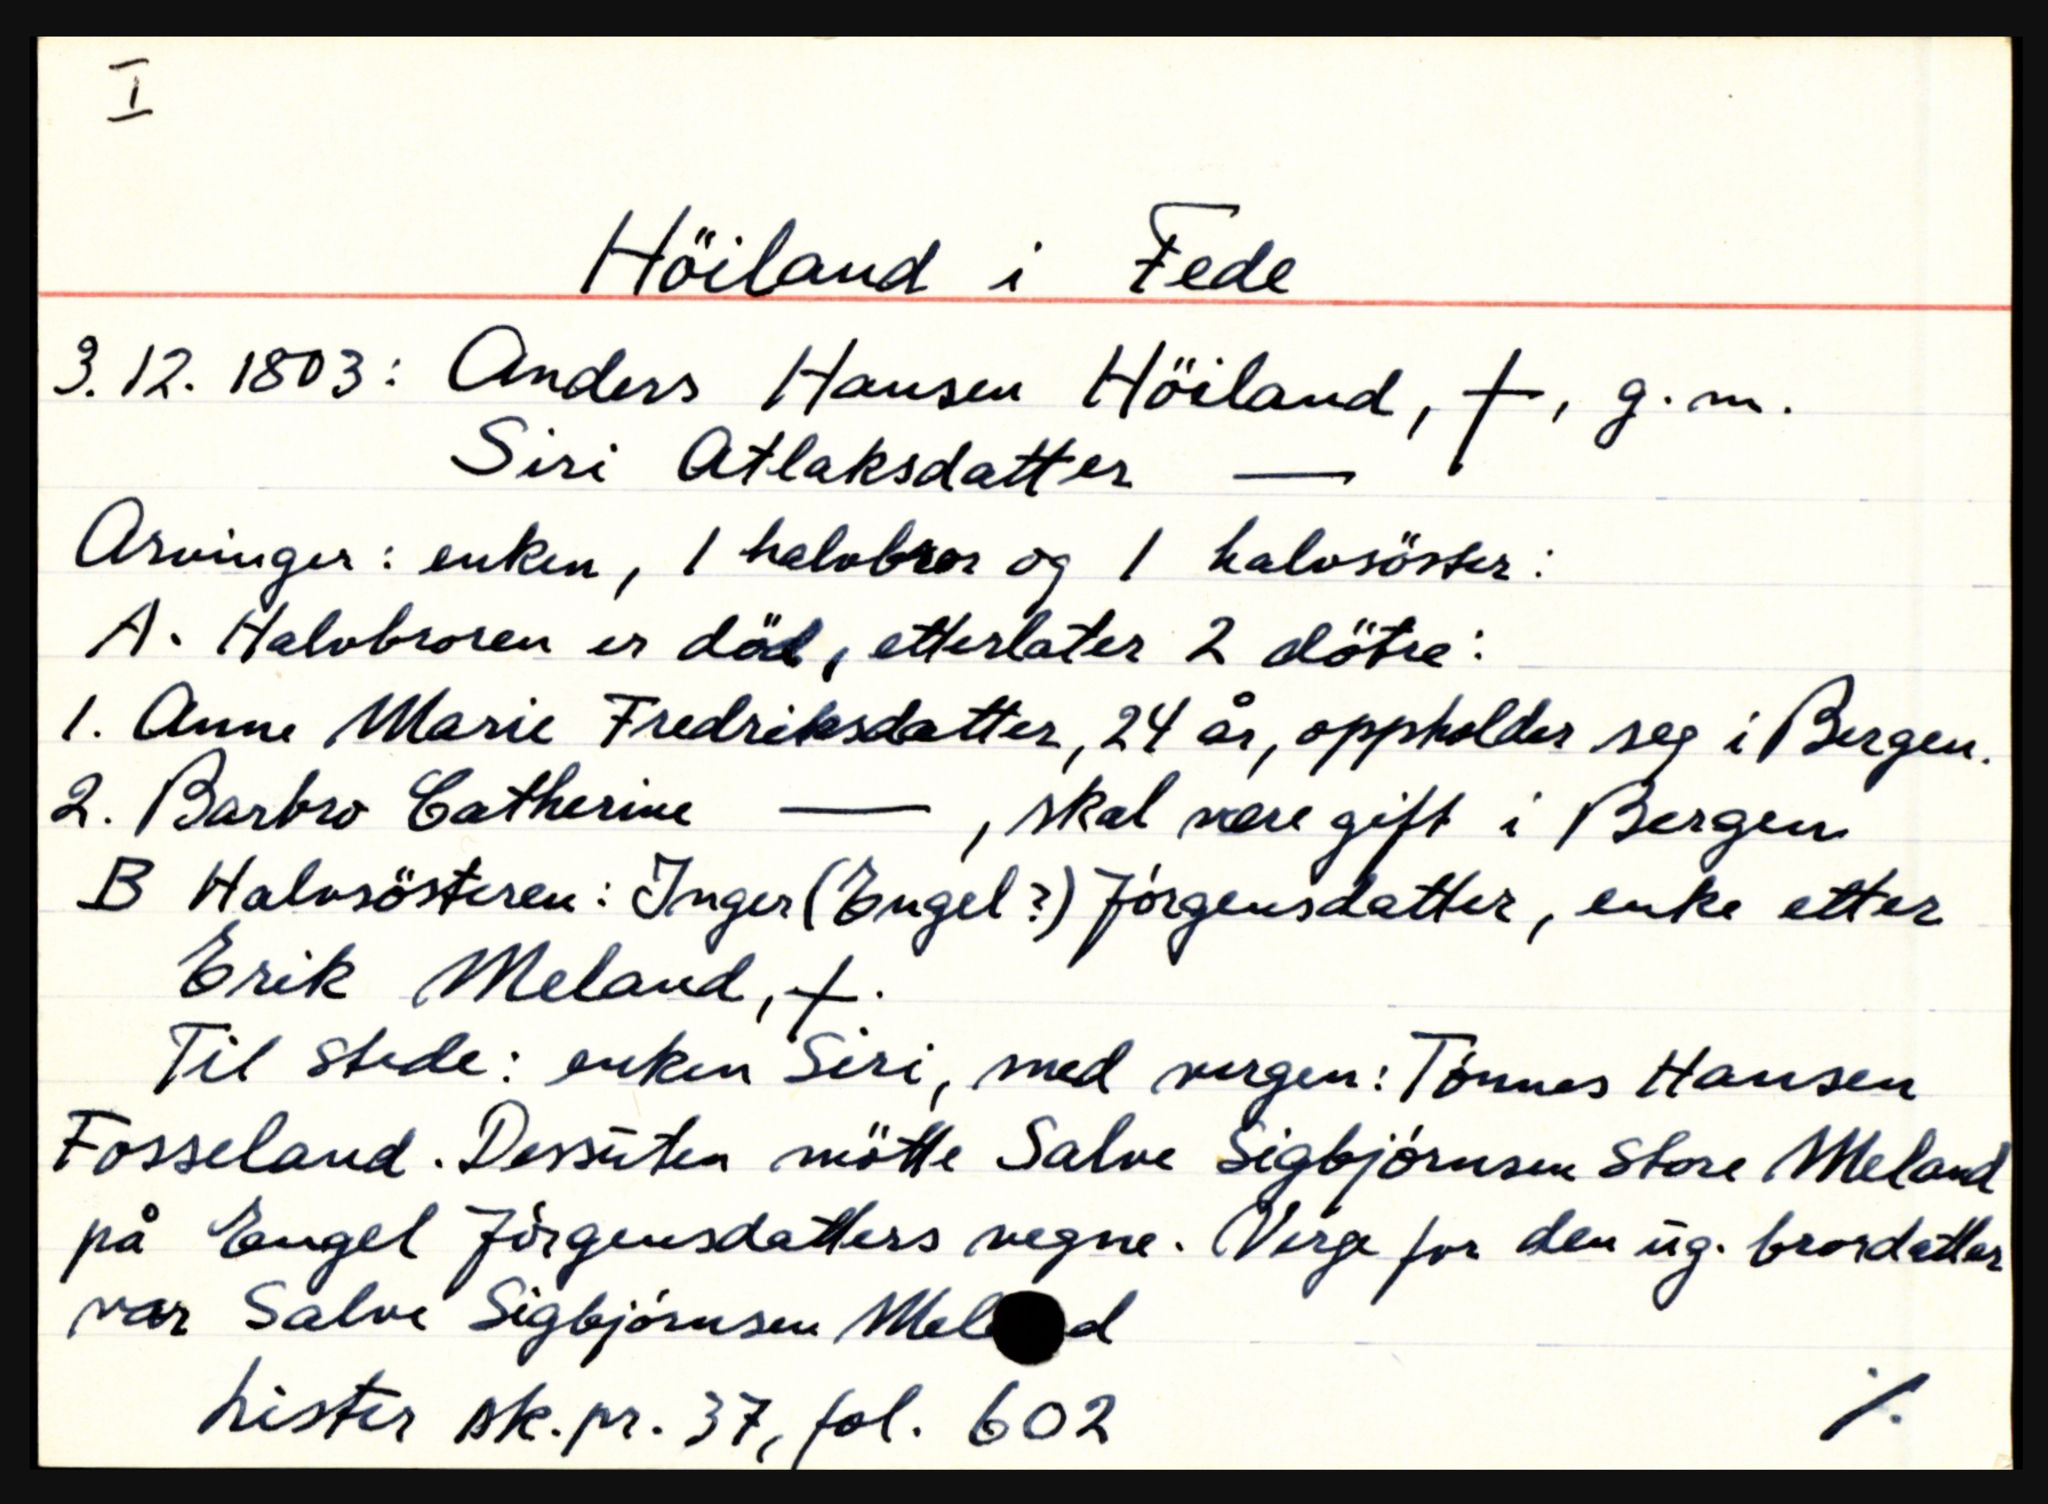 I
Höiland i Fede
3.12.1803: Anders Hansen Höiland, †, g.m.
Siri Atlaksdatter —
Arvinger: enken, 1 halvbror og 1 halvsöster:
A. Halvbroren er död, etterlater 2 dötre:
1. Anne Marie Fredriksdatter, 24 år, oppholder seg i Bergen.
2. Barbro Catherine —, skal være gift i Bergen
B Halvsösteren: Inger (Engel?) Jörgensdatter, enke etter
Erik Meland, †.
Til stede: enken Siri, med vergen: Tönnes Hansen
Fosseland. Dessūten mötte Salve Sigbjörnsen Store Meland
på Engel Jörgensdatters vegne. Verge for den ūg. brordatter
var Salve Sigbjörnsen Mel d
Lister sk.pr. 37, fol. 602
./.